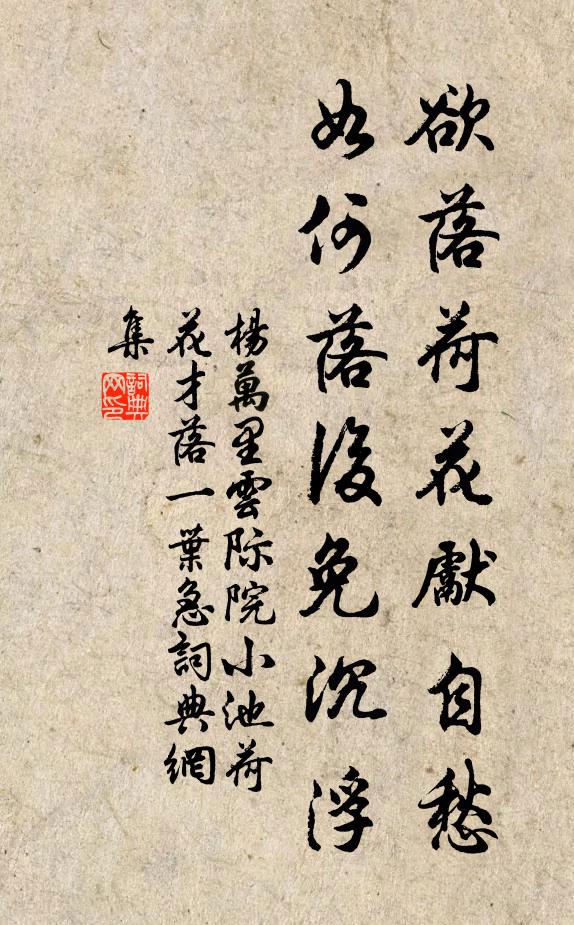 欲落荷花獻自愁
如何落後免沉浮
楊萬里雲际院小池荷
花才落一葉急詞典網
集
詞典
网印